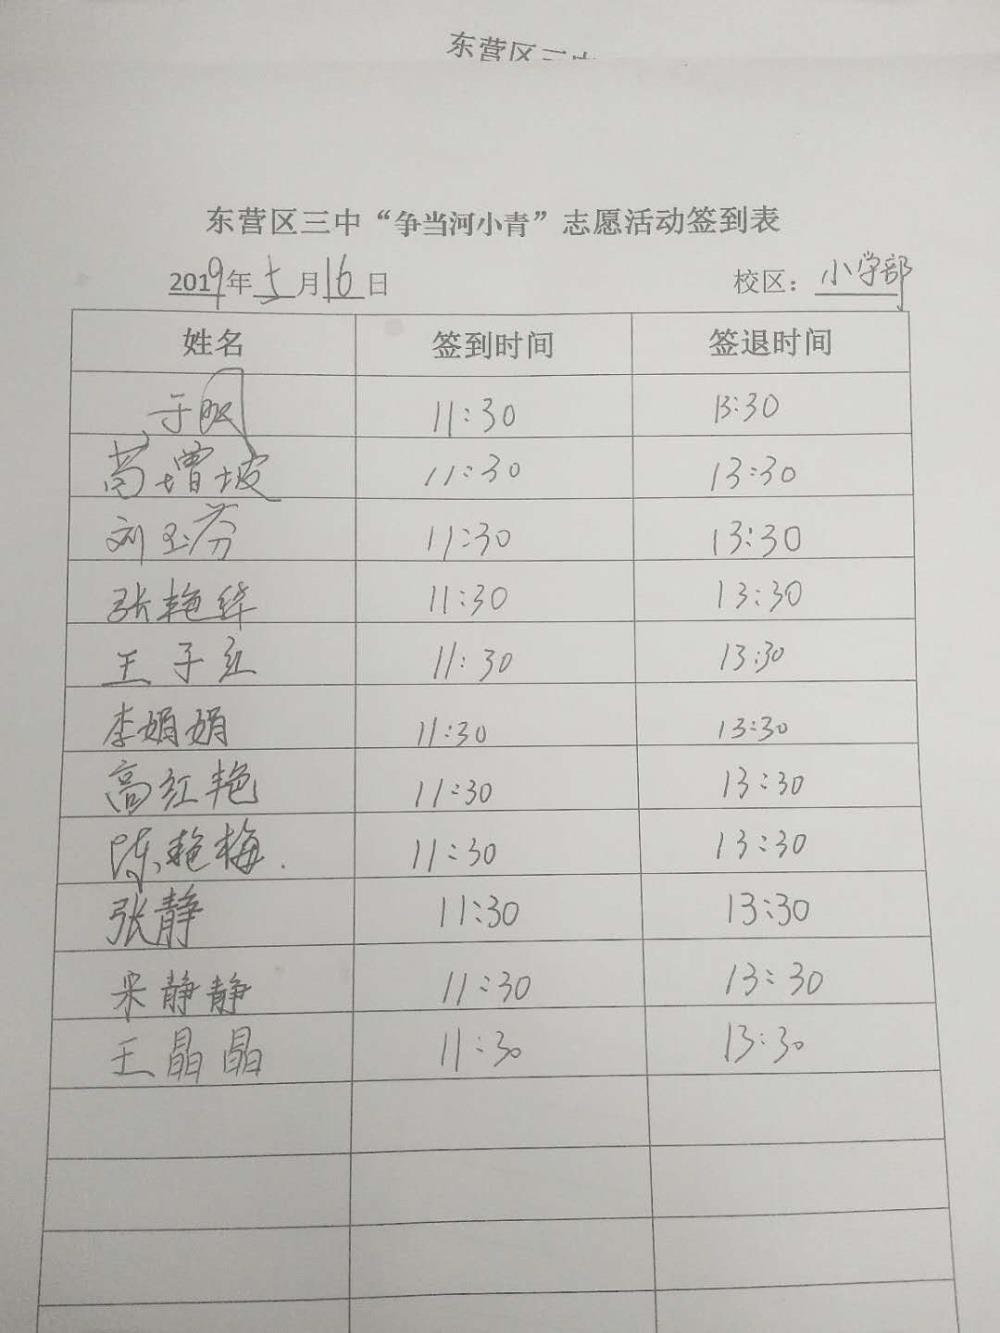 东营区三中
东营区三中“争当河小青”志愿活动签到表
2019年5月16日 校区：小学部
姓名 签到时间 签退时间
于 11:30 13:30
苟增坡 11:30 13:30
刘玉芬 11:30 13:30
张艳华 11:30 13:30
王子红 11:30 13:30
李娟娟 11:30 13:30
高红艳 11:30 13:30
陈艳梅. 11:30 13:30
张静 11:30 13:30
宋静静 11:30 13:30
王晶晶 11:30 13:30